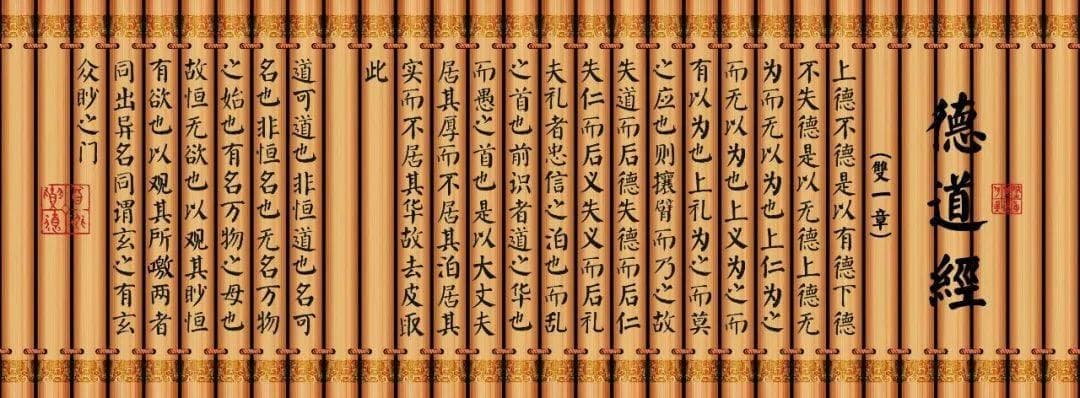 德道經
(雙一章)
上德不德是以有德下德
不失德是以无德上德无
为而无以为也上仁为之
而无以为也上义为之而
有以为也上礼为之而莫
之应也则攘臂而乃之故
失道而后德失德而后仁
失仁而后义失义而后礼
夫礼者忠信之泊也而乱
之首也前识者道之华也
而愚之首也是以大丈夫
居其厚而不居其泊居其
实而不居其华故去皮取
此
道可道也非恒道也名可
名也非恒名也无名万物
之始也有名万物之母也
故恒无欲也以观其眇恒
有欲也以观其所噭两者
同出异名同谓玄之有玄
众眇之门